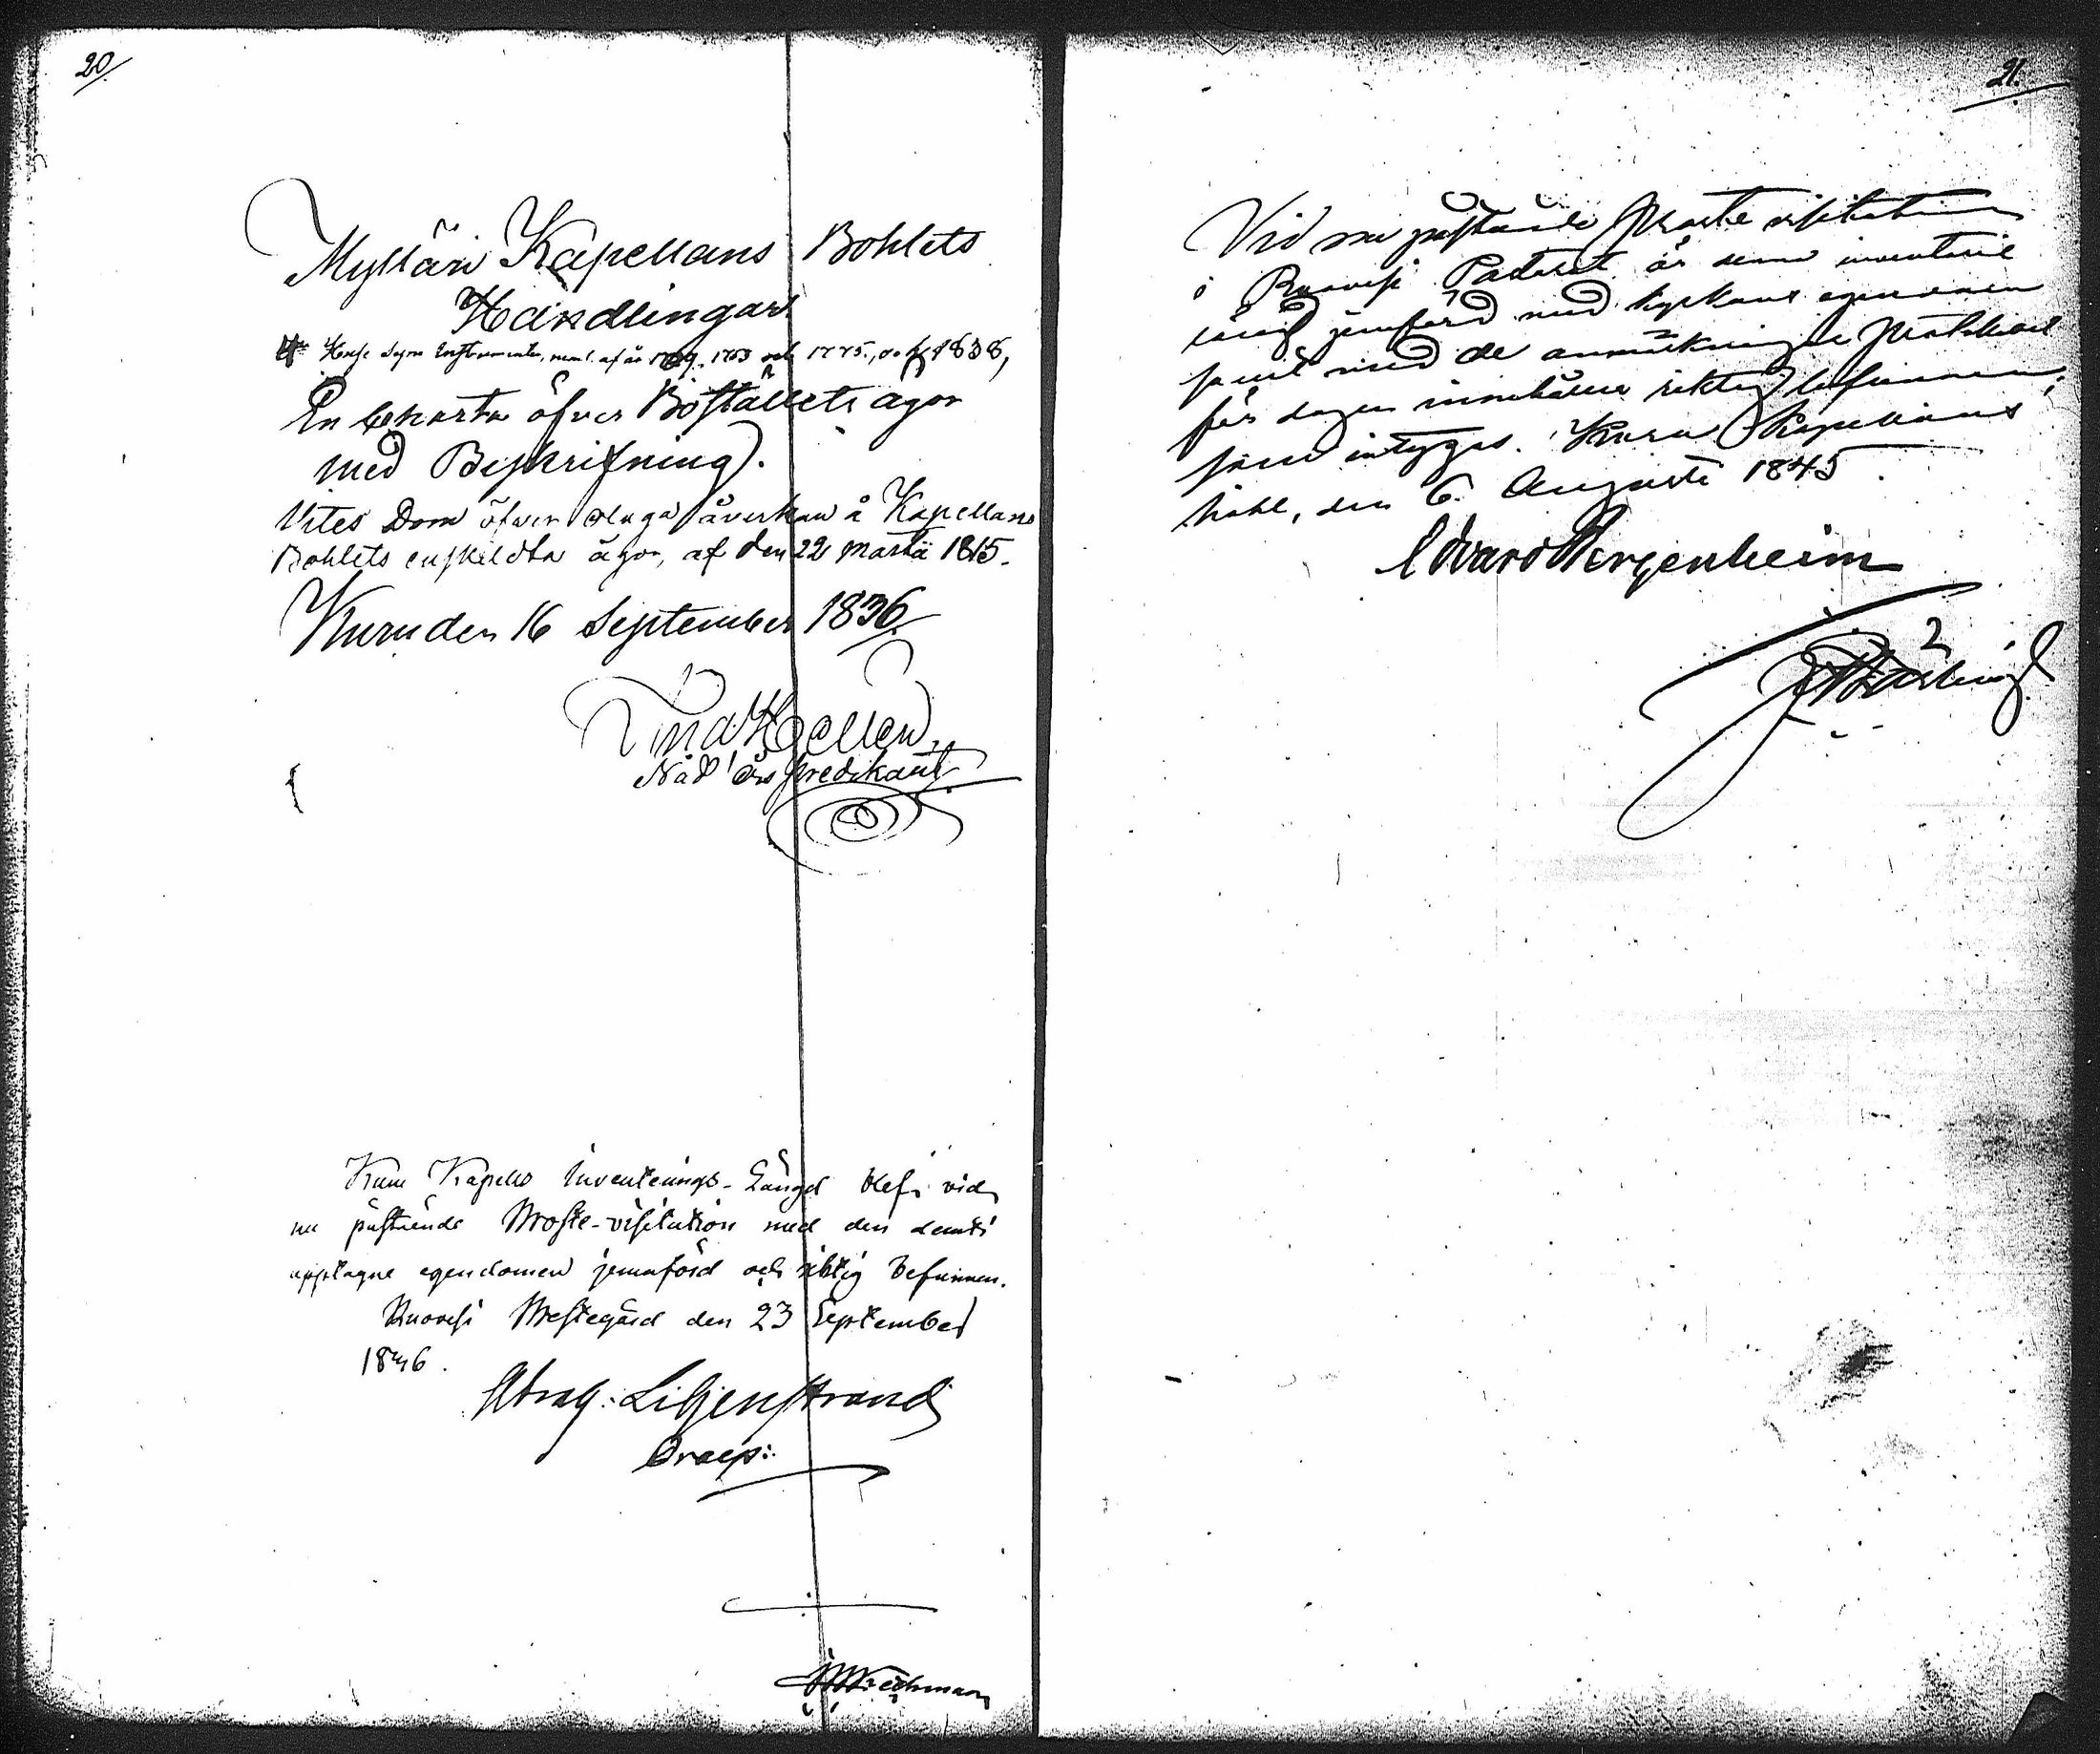 20.
Mylläri Kapellans Bohlets
Handlingar.
Husesyns Instrumenter, neml. af år 1763 och 1775, och 1838,
En Charta öfver Boställets ägor
med Beskrifning.
Utes Dom öfver olaga åverkan å Kapellans
Bohlets enskildta ägor, af den 22 Martii 1815.
Kuru den 16 September 1836.
Hellen,
Nåd' års predikant
Kuru Kapells Inventerings-Längd blef vid
nu påstående Proste-visitation med den deruti
upptagne egendomen jemnförd och riktig befunnen.
Ruovesi Prestegård den 23 September
1836.
Abrah: Liljenstrand
Praep:
21.
Vid nu påstående Proste visitation
i Ruovesi Pastorat är denna inventarie
längd jemförd med kyrkans egendom
samt med de anmärkningar Protokoll
för dagen innehåller riktig befunnen;
som intygas. Kuru Kapellans
bohl, den 6 Augusti 1845.
Edvard Bergenheim